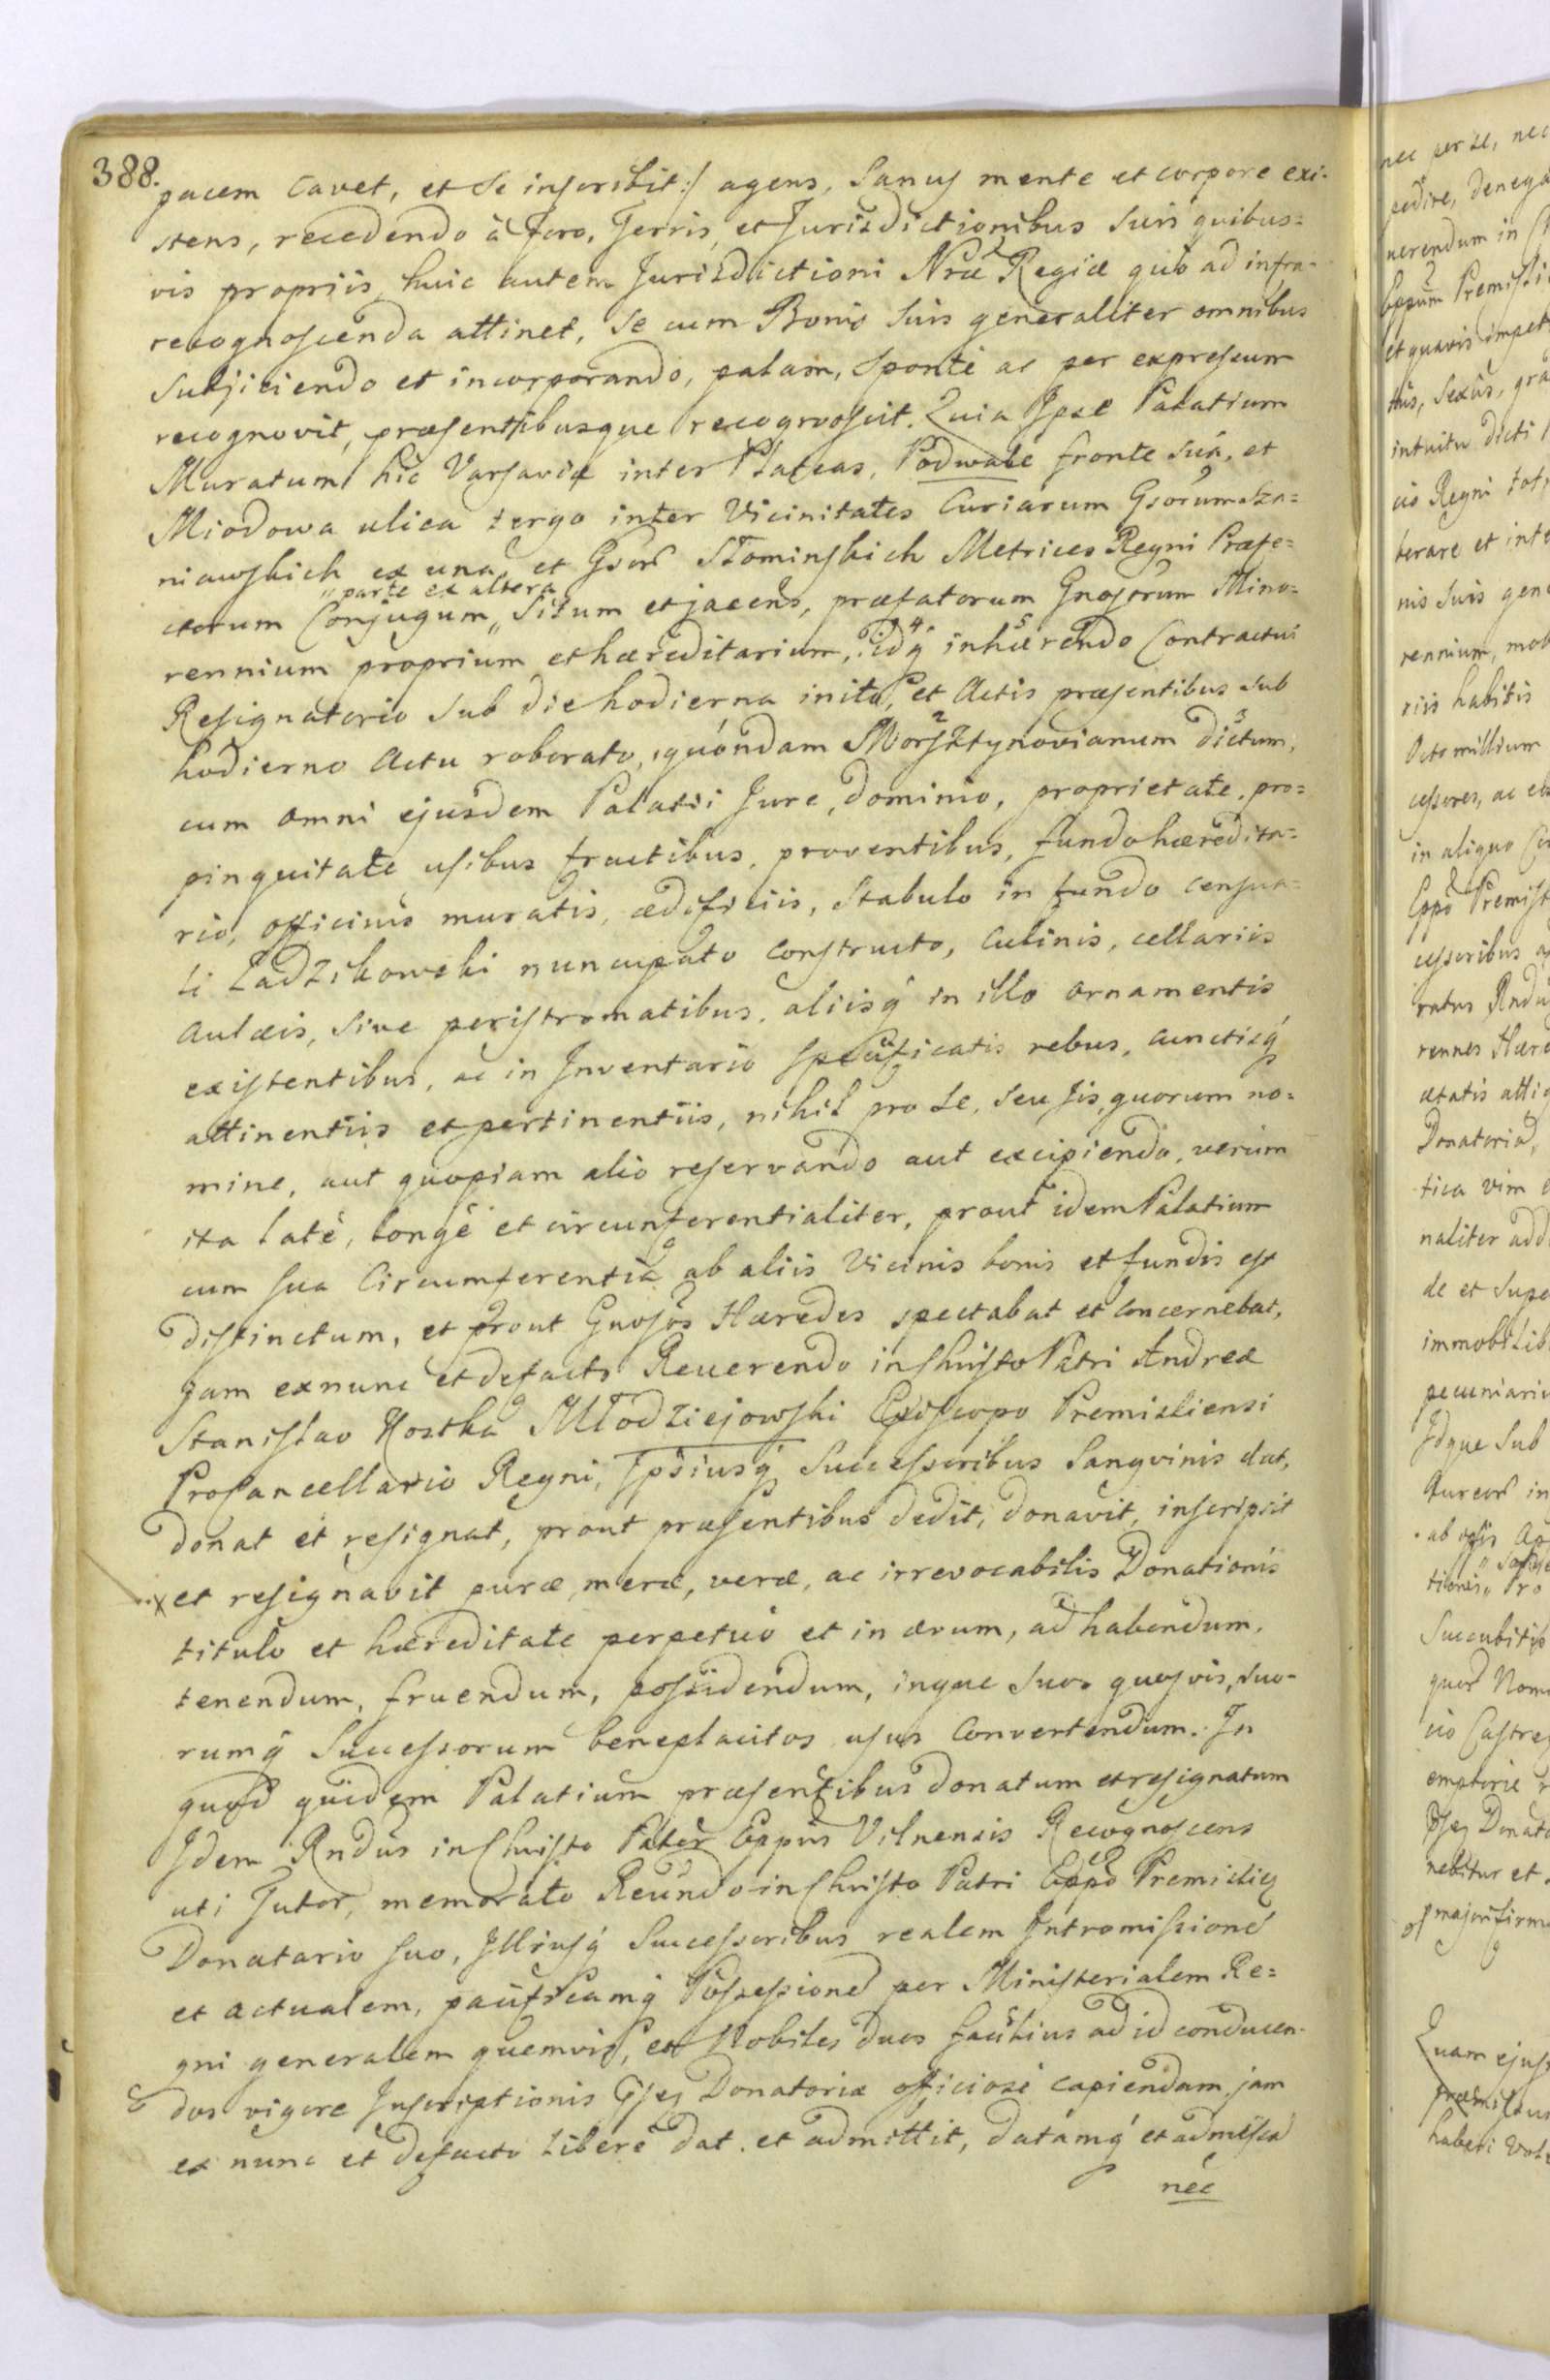 388.
pacem cavet, et se inscribit:/ agens, Sanus mente et corpore exi-
stens, recedendo à foro, Terris, et Jurisdictionibus suis quibus=
vis propriis, huic autem Jurisdictioni Nræ Regiæ quo ad infra-
recognoscenda attinet, se cum Bonis suis generaliter omnibus
subjiciendo et incorporando, palam, sponte ac per expressum
recognovit, præsentibusque recognoscit. Quia Ipse Palatium
Muratum hic Varsaviæ inter Plateas, Podwale fronte suâ, et
Miodowa ulica tergo inter Vicinitates Curiarum Gsorum Sza=
niawskich ex una, et Gsor Słominskich Metrices Regni Præfe=
ctorum Conjugum „parte ex altera„ situm et jacens, præfatorum Gnosorum Mino=
rennium proprium et hæreditarium, idq inhærendo Contractui
Resignatorio sub die hodierna inito, et Actis præsentibus sub
hodierno Actu roborato, quondam Morsztynovianum dictum,
cum omni ejusdem Palatii Jure, dominio, proprietate, pro=
pinquitate usibus fructibus, proventibus, fundo hæredita=
rio, officinis muratis, ædificiis, stabulo in fundo censua=
li Ladzikowski nuncupato constructo, culinis, cellariis
aulæis, sive peristromatibus, aliisq in illo ornamentis
existentibus, ac in Inventario specificatis rebus, cunctisq
attinentiis et pertinentiis, nihil pro se, seu iis, quorum no=
mine, aut quopiam alio reservando aut excipiendo, verùm
ita latè, longè et circumferentialiter, prout idem Palatium
cum sua Circumferentia ab aliis Vicinis bonis et fundis est
distinctum, et prout Gnosos Hæredes spectabat et concernebat,
jam ex nunc et defacto Reuerendo in Christo Patri Andreæ
Stanislao Kostka Młodziejowski Episcopo Premisliensi
Procancellario Regni, Ipsiusq Successoribus Sangvinis dat,
donat et resignat, prout præsentibus dedit, donavit, inscripsit
x et resignavit puræ, meræ, veræ, ac irrevocabilis Donationis
titulo et hæreditate perpetuò et in ævum, ad habendum,
tenendum, fruendum, possidendum, inque suos quosvis, suo-
rumq Successorum beneplacitos usus convertendum. In
quod quidem Palatium præsentibus donatum et resignatum
Idem Rndus in Christo Pater Eppus Vilnensis Recognoscens
uti Tutor, memorato Reundo in Christo Patri Eppo Premislien
Donatario suo, Illiusq Successoribus realem Intromissionē
et actualem, pacificamq Possessionē per Ministerialem Re=
gni generalem quemvis, et Nobiles duos facilius ad id conducen-
dos vigore Inscriptionis Donatoriæ officiosè capiendam, jam
ex nunc et defacto liberè dat et admittit, datamq et admissā
nec
nec per se, nec
Premisli
et quavis impet
tus, sexûs, gra
intuitu dicti
cio Regni tot
berare et inte
nis suis gene
rennium, mob
riis habitis
Octo millium
cessores, ac eos
in aliquo
Eppo Premisl
cessoribus
ratus Rndu
rennes Hære
ætatis atti
Donatoria
tica vim
naliter add
de et supe
immobilib
pecuniari
Idque sub
ab
tionis„
Succubitis
quod Nom
cio Castre
emptoriæ
Donato
nebitur et
major firm
Quam ejus
præmissu
haberi vol